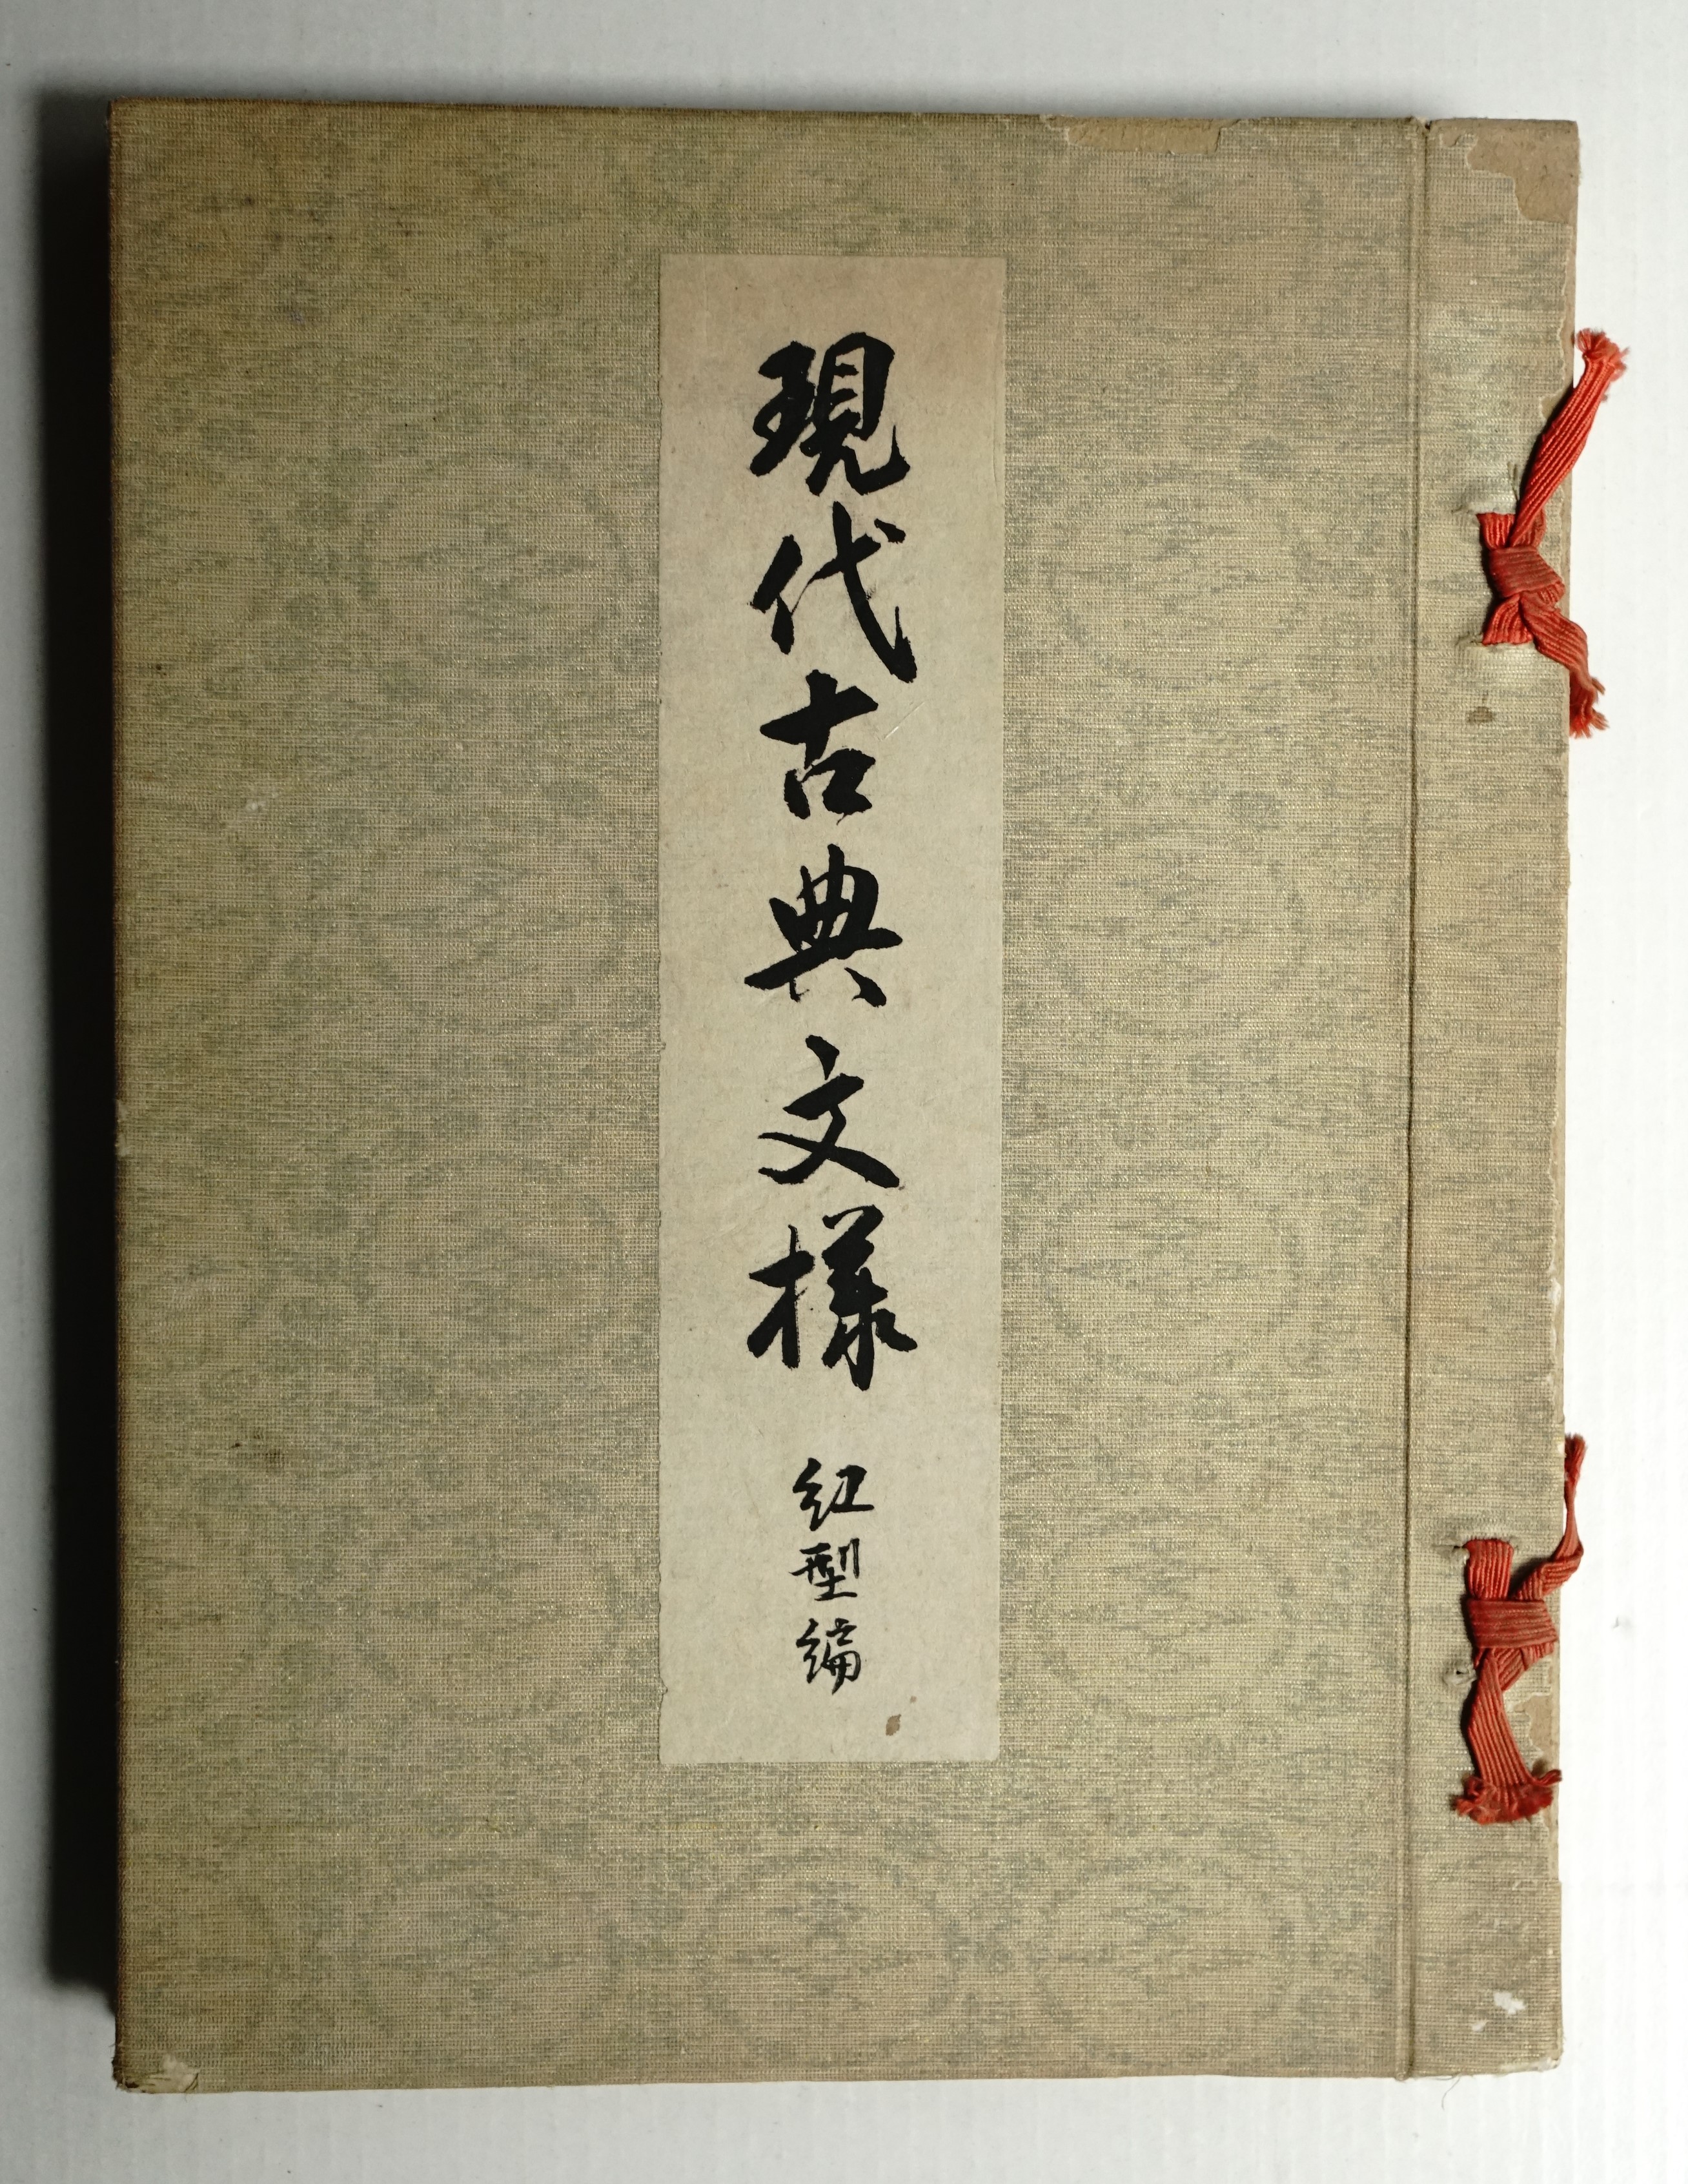 現代古典文様 紅型編